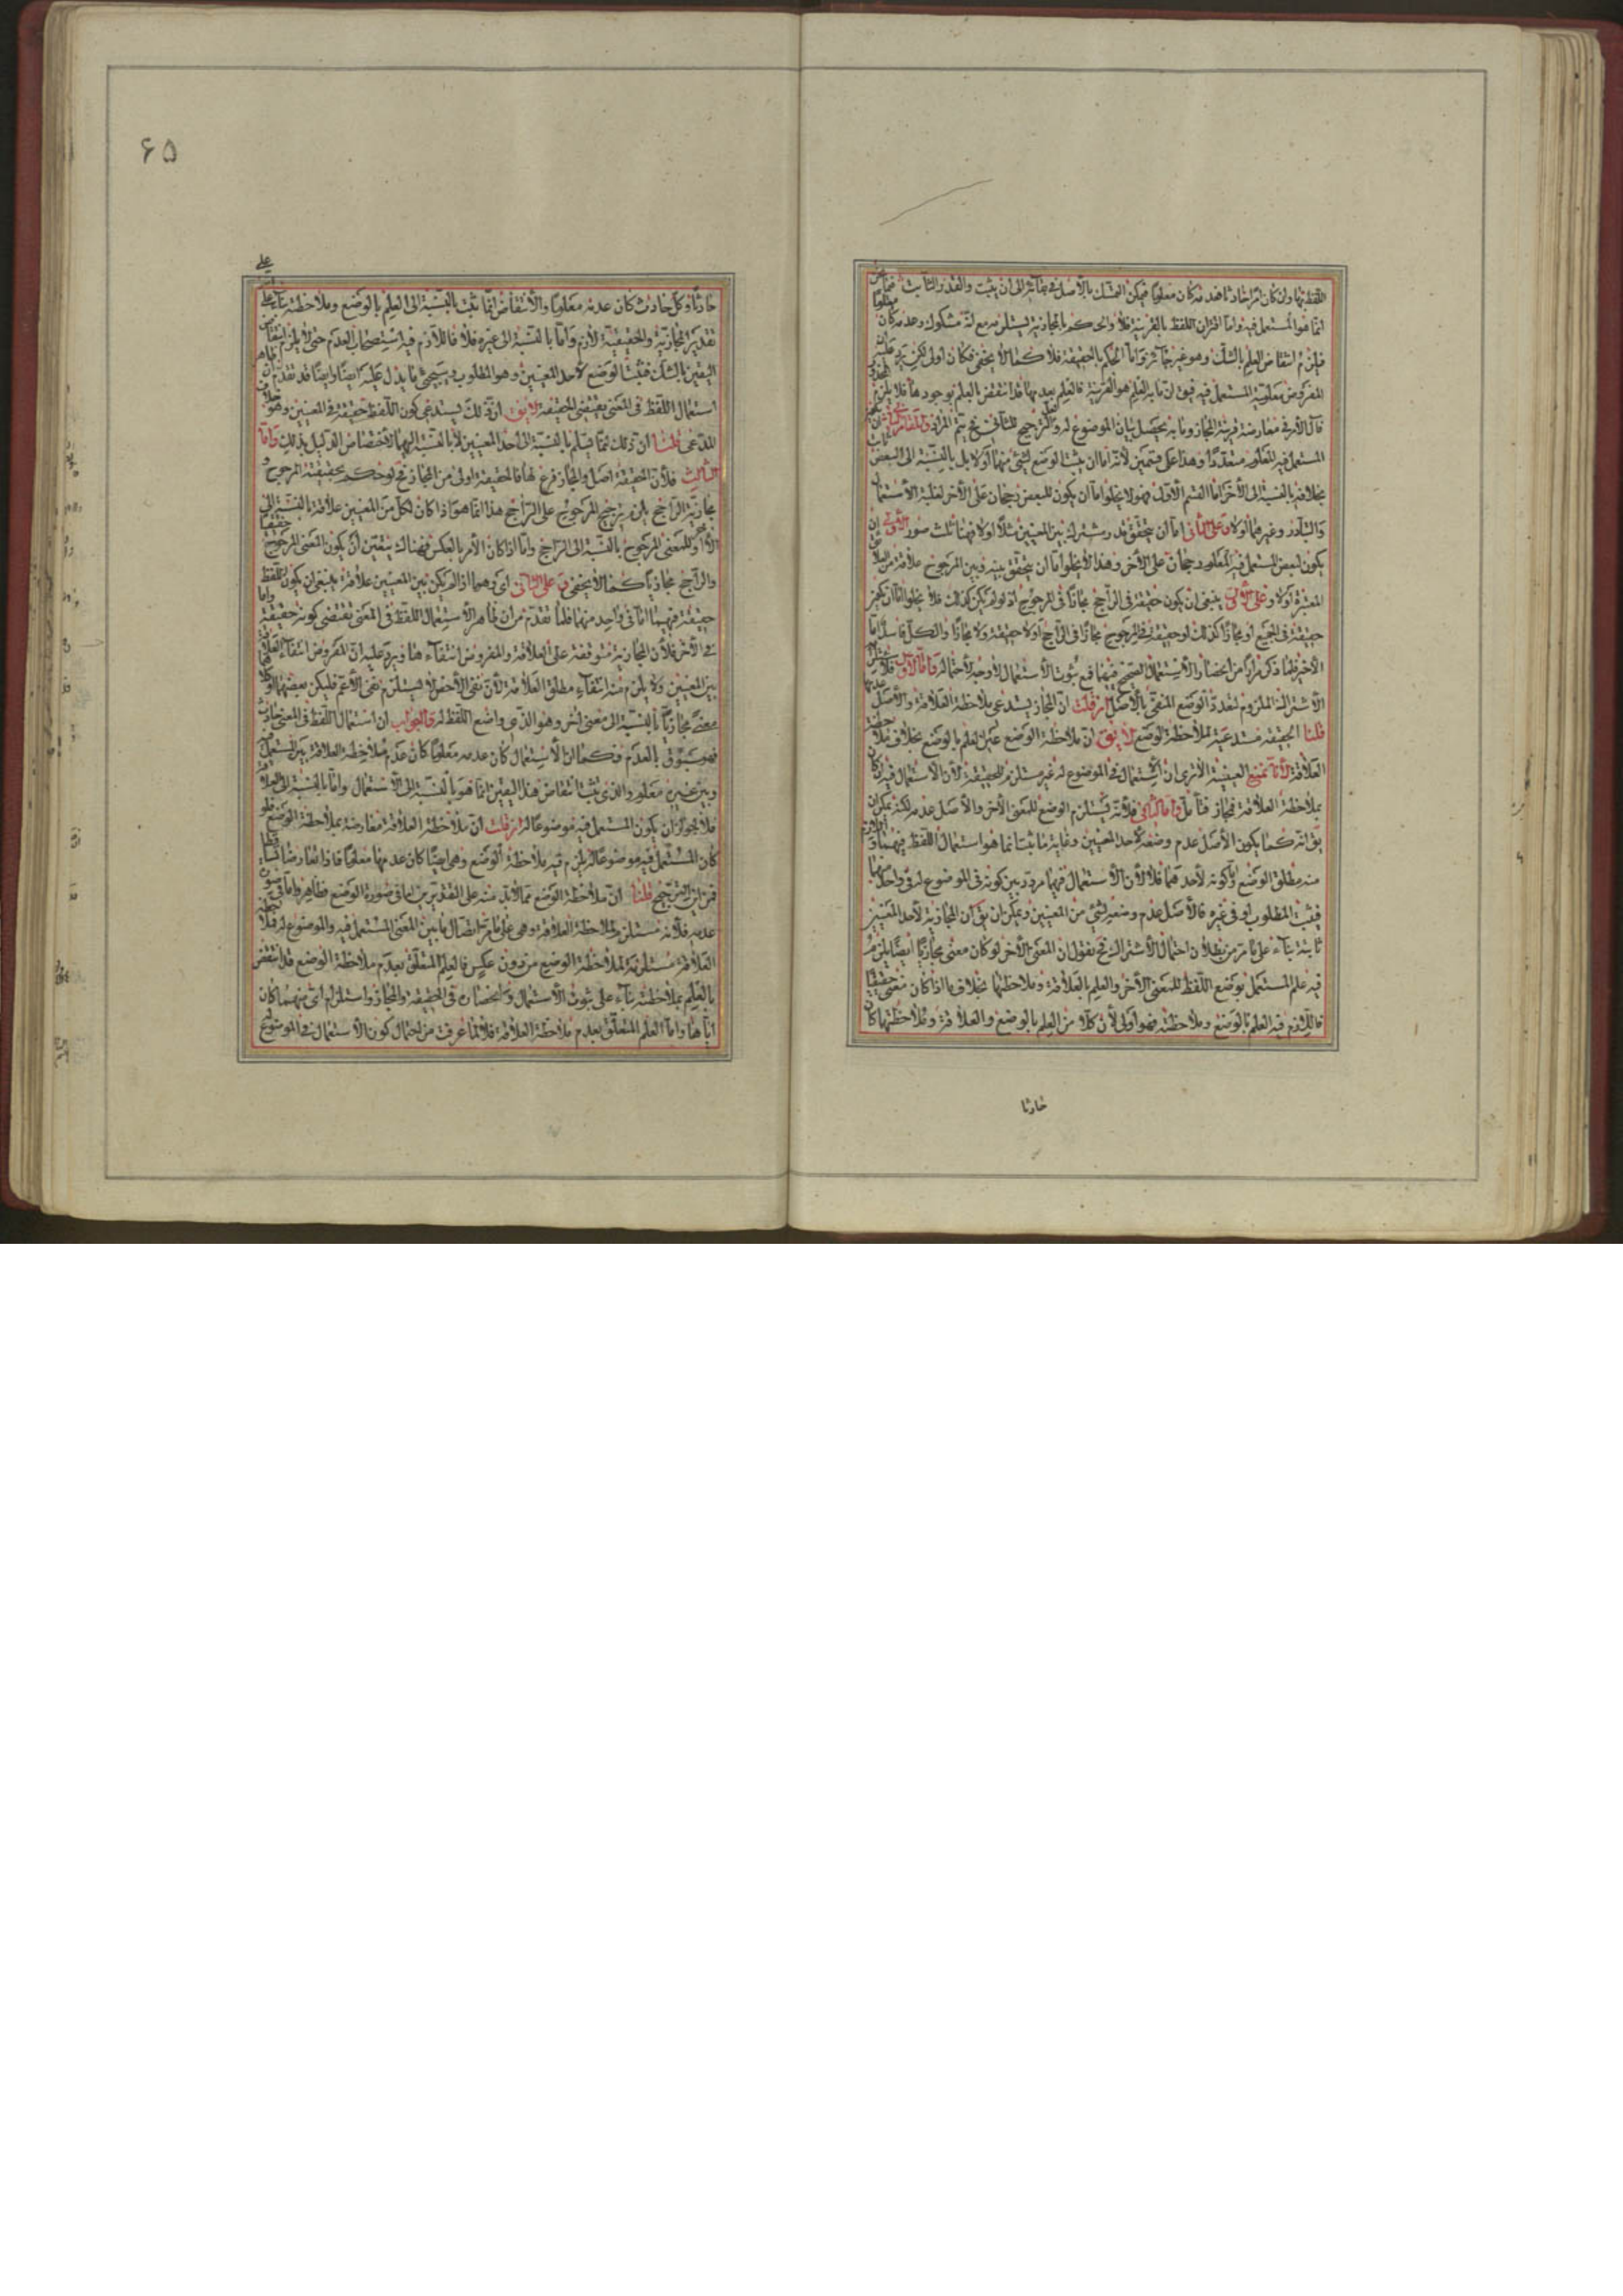 اللفظ بها وان كان امرا حادثا فقد فرض كان معلوما فيمكن التمسك بالأصل في بقائه الى ان يثبت والقدر الثابت
انما هو المستعمل فيه واما اقتران اللفظ بالقرينة فلا والحكم بالمجازية يستلزمه مع انه مشكوك وعدمه كان
فيلزم انتقاض العلم بالشك وهو غير جائز واما الحكم بالحقيقة فلا كما لا يخفى فكان اولى لكن يرد عليه
المفروض معلومية المستعمل فيه فيق ان ما به العلم هو القرينة فالعلم بعدمها قد انتقض العلم بوجودها فلا يلزم
قال الأمر في معارضة قرينة المجاز وما به يحصل بيان الموضوع له والترجيح للثاني فح يتم المرام
المستعمل فيه المعلوم متعددا وهذا على قسمين لأنه اما ان يثبت الوضع لشيء منها أو لا بل بالنسبة الى البعض
بخلافه بالنسبة الى الأخر اما القسم الأول فهو لا يخلوا اما ان يكون للبعض رجحان على الأخر لغلبة الأستعمال
والتبادر وغيرهما أو لا وعلى الثاني اما ان يتحقق قدر مشترك بين المعنيين مثلا او لا فهنا ثلث صور الأولى ان
يكون لبعض المستعمل فيه المعلوم رجحان على الأخر وهذا لا يخلوا اما ان يتحقق بينه وبين المرجوح علاقة من العلائق
المعتبرة أو لا وعلى الأول ينبغي ان يكون حقيقة في الراجح مجازا في المرجوح اذ لو لم يكن كذلك فلا يخلوا اما ان يكون
حقيقة في الجميع او مجازا كذلك او حقيقة في المرجوح مجازا في الراجح أو لا حقيقة ولا مجازا والكل فاسد اما
الأخير فلما ذكر مرارا من انحصار الأستعمال الصحيح فيهما فمع ثبوت الأستعمال لا وجه لأحتماله واما الأول فلأستلزامه
الأشتراك الملزوم لتعدد الوضع المنفي بالأصل ان قلت ان المجاز يستدعي ملاحظة العلاقة والأصل عدمها
قلنا الحقيقة مستدعية لملاحظة الوضع لا يق ان ملاحظة الوضع عين العلم بالوضع بخلاف ملاحظة
العلاقة لأنا نمنع العينية الا ترى ان الاستعمال في الموضوع له غير مستلزم للحقيقة لأن الأستعمال فيه ان كان
بملاحظة العلاقة فمجاز فتأمل واما الثاني فلأنه يستلزم الوضع للمعنى الأخر والأصل عدمه لكنه يمكن ان
يق انه كما يكون الأصل عدم وضعه لأحد المعنيين وغاية ما ثبت انما هو استعمال اللفظ فيهما و
منه مطلق الوضع واما كونه لأحدهما فلا لأن الأستعمال فيهما مردد بين كونه في الموضوع له في واحد منهما
فيثبت المطلوب او في غيره فالأصل عدم وضعه لشيء من المعنيين ويمكن ان يق ان المجازية لأحد المعنيين
ثابتة بناء على ما مر من بطلان احتمال الأشتراك فح نقول ان المعنى الأخر لو كان معنى مجازيا ايضا يلزم
فيه علم المستعمل بوضع اللفظ للمعنى الأخر والعلم بالعلاقة وملاحظتها بخلاف ما اذا كان معنى حقيقيا
فاللازم فيه العلم بالوضع وملاحظته فهو أولى لأن كلا من العلم بالوضع والعلاقة وملاحظتها كان
حادثا
۶۵
حادثا وكل حادث كان عدمه معلوما والأنتقاض انما ثبت بالنسبة الى العلم بالوضع وملاحظته بناء على
تقدير المجازية والحقيقية لازم واما بالنسبة الى غيره فلا فاللازم فيه استصحاب العدم حتى لا يلزم انتقاض
اليقين بالشك فثبت الوضع لأحد المعنيين وهو المطلوب وسيجئ ما يدل عليه ايضا وايضا قد تقدم ان ظاهر
استعمال اللفظ في المعنى يقتضي الحقيقة لا يق ان ذلك يستدعي كون اللفظ حقيقة في المعنيين وهو خلاف
المدعى قلنا ان ذلك مما يسلم بالنسبة الى أحد المعنيين لا بالنسبة اليهما لأختصاص الدليل بذلك واما
الثالث فلأن الحقيقة اصل والمجاز فرع لها فالحقيقة اولى من المجاز فح لو حكم بحقيقية المرجوح و
مجازية الراجح يلزم ترجيح المرجوح على الراجح هذا انما هو اذا كان لكل من المعنيين علاقة بالنسبة الى
الأخر او للمعنى المرجوح بالنسبة الى الراجح واما اذا كان الأمر بالعكس فهناك يتعين ان يكون المعنى المرجوح حقيقيا
والراجح مجازيا كما لا يخفى وعلى الثاني اي فيما اذا لم يكن بين المعنيين علاقة ينبغي ان يكون اللفظ
حقيقة فيهما اما في واحد منهما فلما تقدم مرارا ان ظاهر الأستعمال اللفظ في المعنى يقتضي كونه حقيقة واما
في الأخر فلأن المجازية متوقفة على العلاقة والمفروض انتفاء ها ويرد عليه ان المفروض انتفاء العلاقة
بين المعنيين ولا يلزم منه انتفاء مطلق العلاقة لأن نفي الأخص لا يستلزم نفي الأعم فليكن بعضهما او كلاهما
معنى مجازيا بالنسبة الى معنى اخر وهو الذي واضع اللفظ له والجواب ان استعمال اللفظ في المعنى حادث
فهو مسبوق بالعدم فكما ان الأستعمال كان عدمه معلوما كان عدم ملاحظة العلاقة بين المستعمل فيه
وبين غيره معلوم والذي ثبت انتقاض هذا اليقين انما هو بالنسبة الى الأستعمال واما بالنسبة الى العلاقة
فلا لجواز ان يكون المستعمل فيه موضوعا له ان قلت ان ملاحظة العلاقة معارضة بملاحظة الوضع فلو
كان المستعمل فيه موضوعا له يلزم فيه ملاحظة الوضع وهي ايضا كان عدمها معلوما فاذا تعارضا تساقطا
فمن اين الترجيح قلنا ان ملاحظة الوضع مما لا بد منه على التقديرين اما في صورة الوضع فظاهر واما في صورة
عدمه فلأنه مستلزم لملاحظة العلاقة وهي على ما مر اتصال ما بين المعنى المستعمل فيه والموضوع له فملاحظة
العلاقة مستلزمة لملاحظة الوضع من دون عكس فالعلم المتعلق بعدم ملاحظة الوضع قد انتقض
بالعلم بملاحظته بناء على ثبوت الأستعمال وانحصاره في الحقيقة والمجاز واستلزام اي منهما كان
اياها واما العلم المتعلق بعدم ملاحظة العلاقة فلا لما عرفت من احتمال كون الأستعمال في الموضوع له